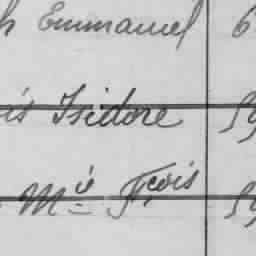 h Emmanuel 6
is Isidore 59
Mie Fçois 59